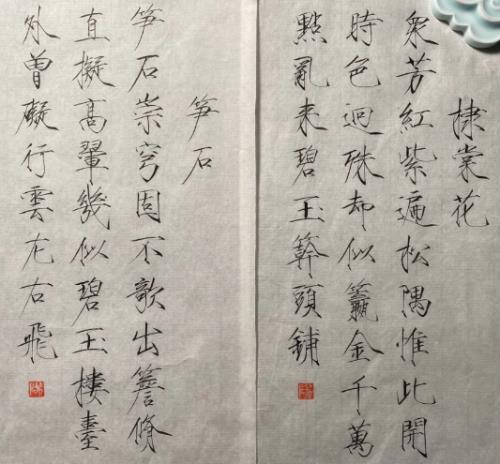 棣棠花
衆芳紅紫遍松隅惟此開
時色迥殊却似籯金千萬
點亂来碧玉簳頭鋪
笋石
笋石崇穹固不欹出簷脩
直擬高翬幾似碧玉樓臺
外曾礙行雲左右飛